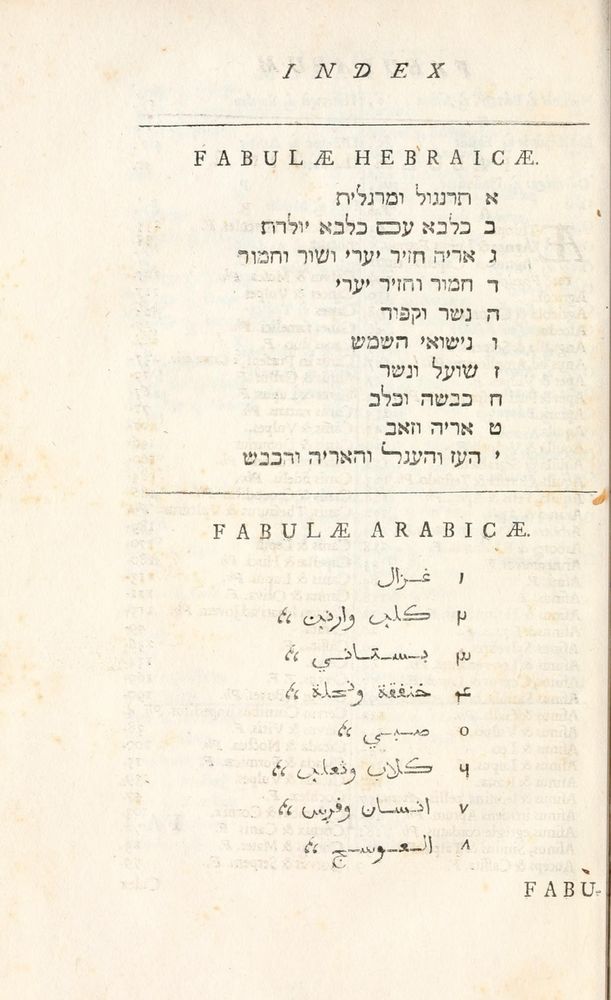 INDEX
FABULÆ HEBRAICÆ.
א תרנגול ומרגלית
ב כלבא עם כלבא יולדת
ג אריה חזיר יערי ושור וחמור
ד חמור וחזיר יערי
ה נשר וקפוד
ו נישואי השמש
ז שועל ונשר
ח כבשה וכלב
ט אריה וזאב
י העז והעגל והאריה והכבש
FABULÆ ARABICÆ.
١ غزال
٢ كلب وارنب
٣ بستاني
۴ خنفقة ونحلة
٥ صبي
٦ كلاب وثعلب
٧ انسان وفرس
٨ العوسج
FABU-